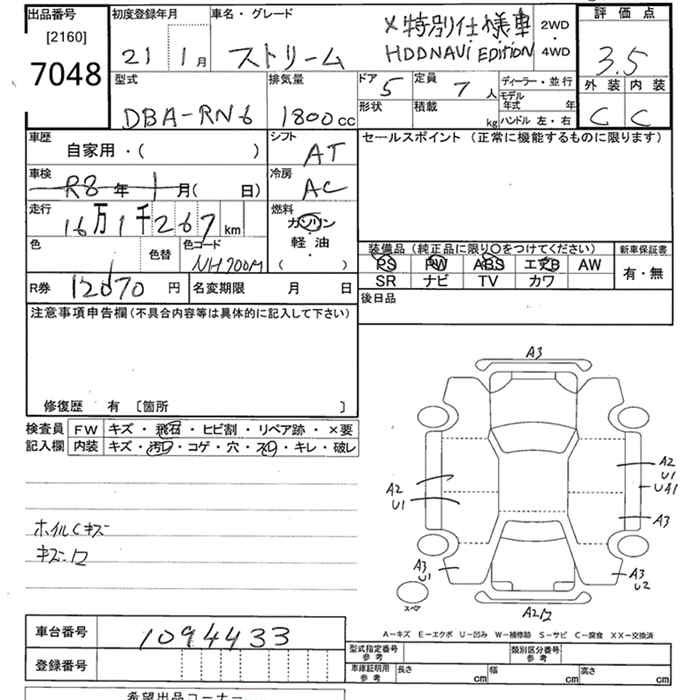 出品番号
[2160]
7048
初度登録年月
21 1月
車名・グレード
ストリーム
X特別仕様車
HDDNAVI EDITION
2WD
・
4WD
評価点
3.5
外装 内装
C C
型式
DBA-RN6
排気量
1800cc
ドア 5
定員 7人
形状
積載 kg
ディーラー・並行
モデル
年式 年
ハンドル 左・右
車歴
自家用・( )
シフト
AT
車検
R8年1月( 日)
冷房
AC
走行
16万1千267km
燃料
ガソリン
・
軽油
( )
色
色替
色コード
NH700M
R券 12070円
名変期限 月 日
セールスポイント(正常に機能するものに限ります)
装備品(純正品に限り○をつけてください)
PS PW ABS エアB AW
SR ナビ TV カワ
新車保証書
有・無
後日品
注意事項申告欄(不具合内容等は具体的に記入して下さい)
修復歴 有 〔箇所 〕
検査員
記入欄
FW キズ・飛石・ヒビ割・リペア跡・×要
内装 キズ・汚・コゲ・穴・スレ・キレ・破レ
ホイルCキズ
A3
A2
U1
A2
U1
UA1
A3
A3
U1
A3
U2
スペア
A-キズ E-エクボ U-凹み W-補修跡 S-サビ C-腐食 XX-交換済
車台番号 1094433
登録番号
型式指定番号
参考
類別区分番号
参考
車庫証明用
参考
長さ cm
幅 cm
高さ cm
希望出品コーナー